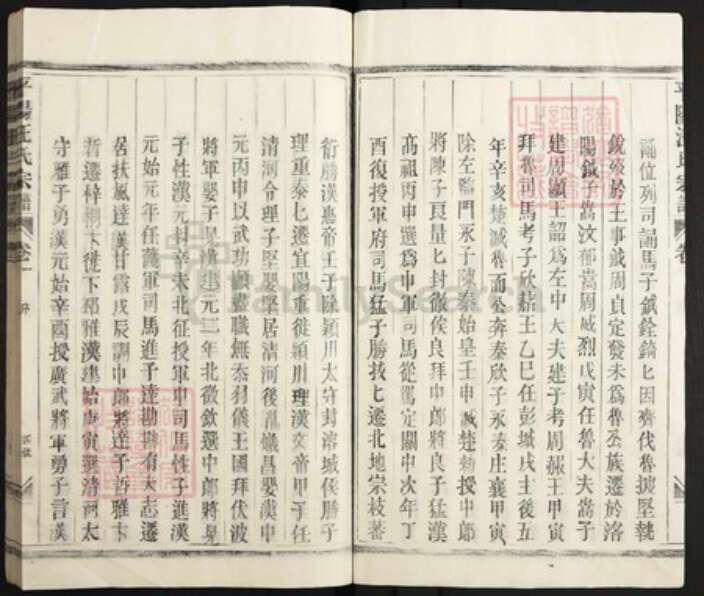 誧位列司誧馬子鉞銓錡匕因齊伐魯援堅執
銳竣於王事鉞周貞定發未爲魯丞族遷於洛
陽鉞子嵩汶郁嵩周威烈戊寅任魯大夫嵩子
建周顯王詔爲左中大夫建子考周赧王甲寅
拜魯司馬考子欣赧王乙巳任彭城戌主後五
年辛亥楚滅魯而公奔秦欣子永秦庄襄甲寅
除左監門永子陳秦始皇壬申滅楚勅授中郎
將陳子良量匕封徽侯良拜中郎將良子猛漢
高祖丙申選爲中軍司馬從駕定關中次年丁
酉復授軍府司馬猛子勝技匕遷北地宗枝蕃
衍勝漢惠帝壬子除穎川太守封溶城侯勝子
理重泰匕遷宜陽重徙穎川理漢文帝甲子任
清河令理子堅嬰堅居清河後胤儀昌嬰漢中
元丙申以武功顯盡職無忝羽儀王國拜伏波
將軍嬰子晃漢建元二年北徵斂選中郎將晃
子性漢元封辛未北征授軍中司馬性子進漢
元始元年任蕩軍司馬進子達勘騰有大志遷
居扶風達漢甘露戊辰調中郎將達子哲雅卞
哲遷梓桐卞徙下邳雅漢建始庚寅選清河太
守雅子勇漢元始辛酉授廣武將軍勇子言漢
平陽汪氏宗譜 卷一 序